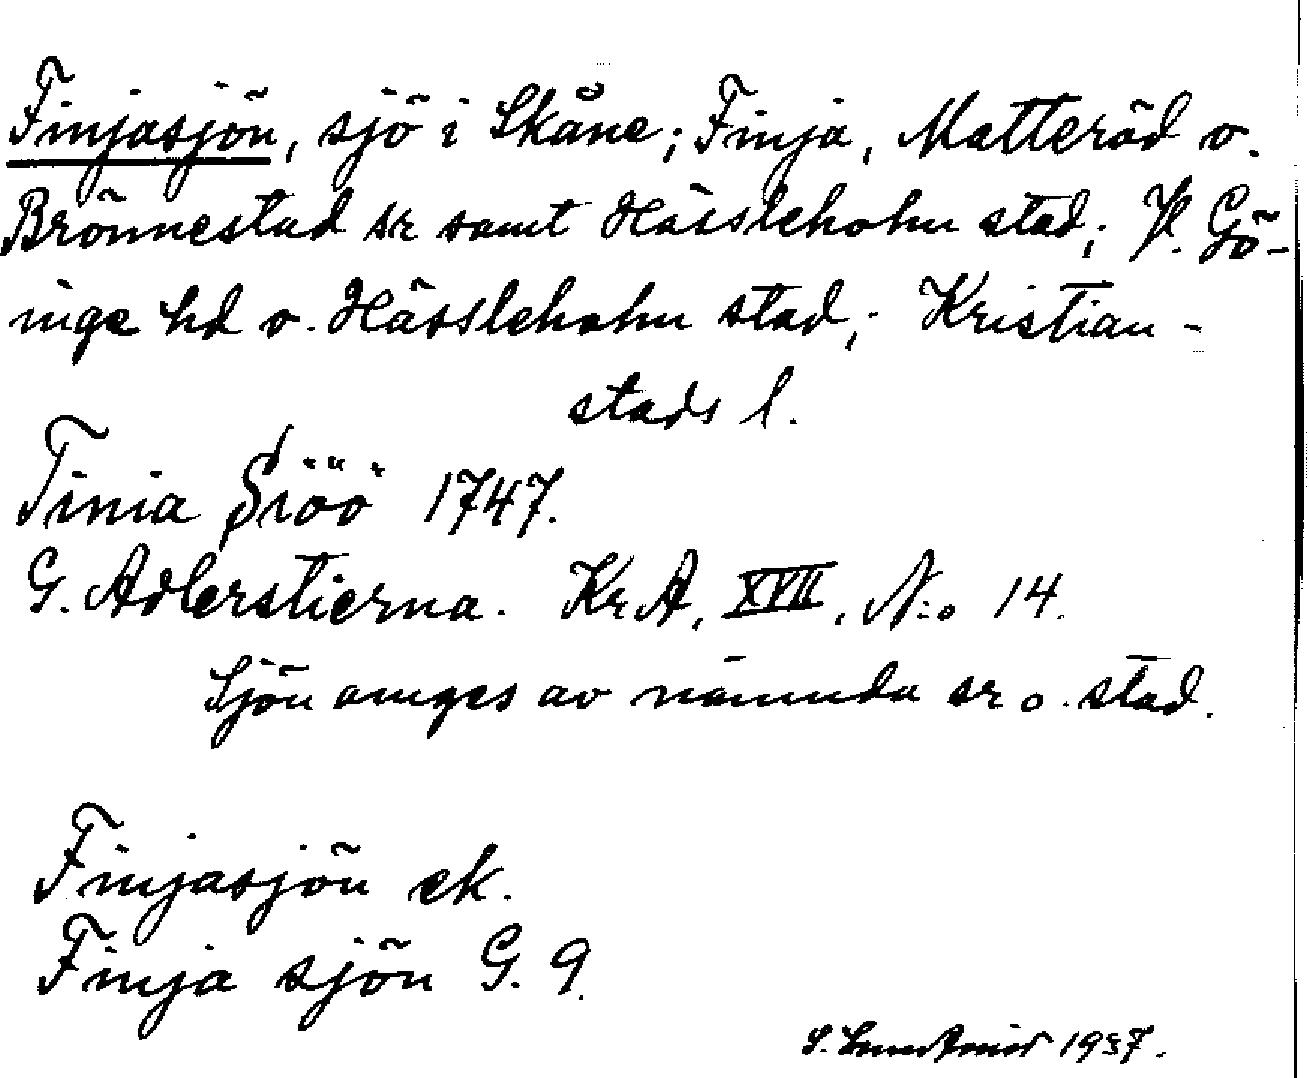 Finjasjön, sjö i Skåne; Finja, Matteröd o.
Brönnestad sr samt Hässleholm stad; V. Gö-
inge hd o. Hässleholm stad; Kristian-
stads l.
Tinia Siöö 1747.
G. Adlerstierna. KrA, XVII, N:o 14.
Sjön omges av nämnda sr o. stad.
Finjasjön ek.
Finja sjön G. 9.
S. 1937.